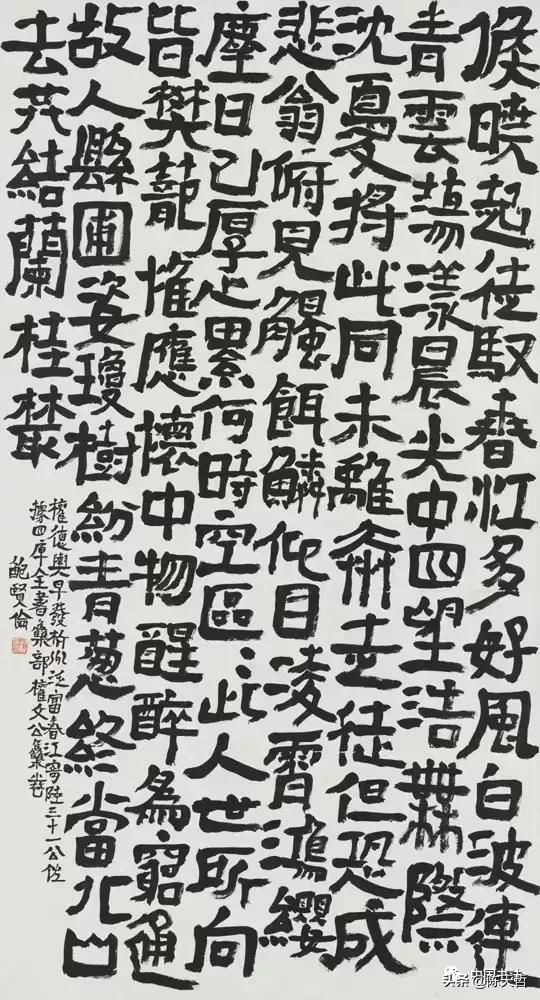 候曉起徒馭春江多好風白波連
青雲蕩漾晨光中四望浩無際
沈憂將此同未離奔走徒但恐成
悲翁俯見觸餌鱗仰目淩霄鴻纓
塵日已厚心累何時空區〻此人世所向
皆樊蘢惟應懷中物醒醉為窮通
故人縣圃姿瓊樹紛青蔥終當此山
去共結蘭桂叢
權德輿早發杭州泛富春江寄陸三十一公佐
據四庫全書集部權文公集書
鮑賢倫
中国书法
头条 @陈天哲